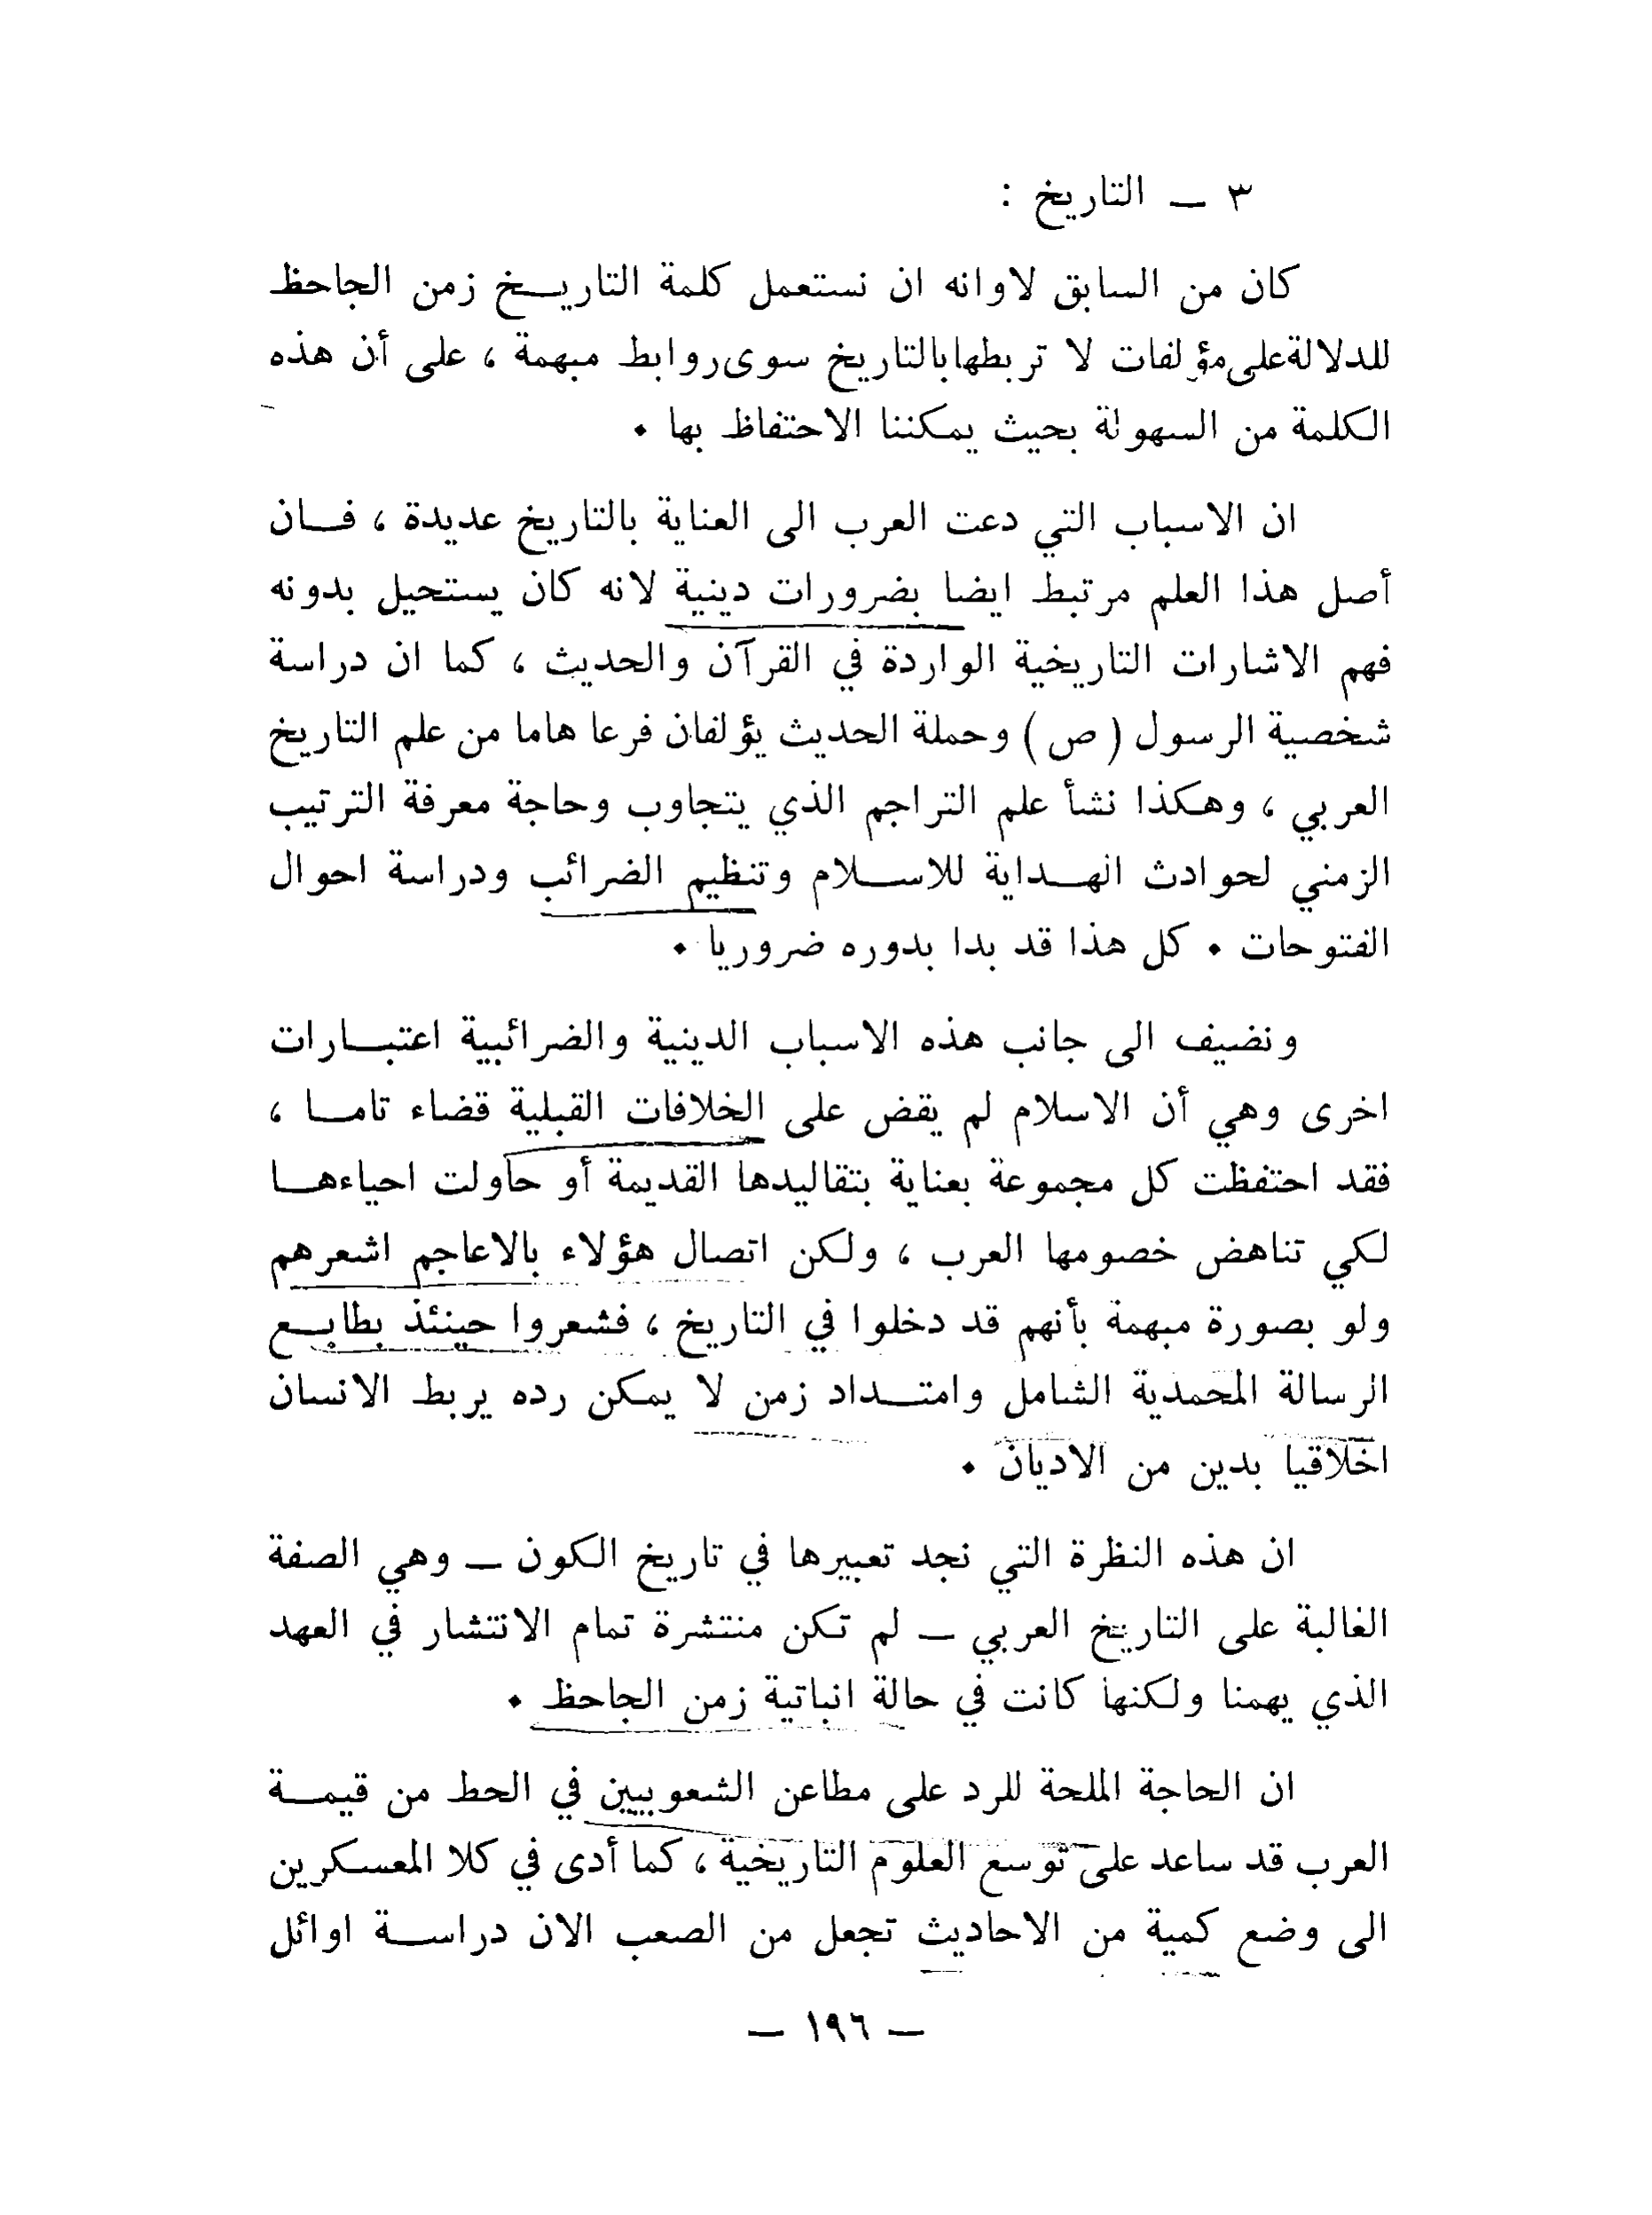 ٣ ــ التاريخ :
كان من السابق لاوانه ان نستعمل كلمة التاريـــخ زمن الجاحظ
للدلالة على مؤلفات لا تربطها بالتاريخ سوى روابط مبهمة ، على أن هذه
الكلمة من السهولة بحيث يمكننا الاحتفاظ بها ٠
ان الاسباب التي دعت العرب الى العناية بالتاريخ عديدة ، فـــان
أصل هذا العلم مرتبط ايضا بضرورات دينية لانه كان يستحيل بدونه
فهم الاشارات التاريخية الواردة في القرآن والحديث ، كما ان دراسة
شخصية الرسول ( ص ) وحملة الحديث يؤلفان فرعا هاما من علم التاريخ
العربي ، وهكذا نشأ علم التراجم الذي يتجاوب وحاجة معرفة الترتيب
الزمني لحوادث الهـــداية للاســـلام وتنظيم الضرائب ودراسة احوال
الفتوحات ٠ كل هذا قد بدا بدوره ضروريا ٠
ونضيف الى جانب هذه الاسباب الدينية والضرائبية اعتبـــارات
اخرى وهي أن الاسلام لم يقض على الخلافات القبلية قضاء تامـــا ،
فقد احتفظت كل مجموعة بعناية بتقاليدها القديمة أو حاولت احياءهـــا
لكي تناهض خصومها العرب ، ولكن اتصال هؤلاء بالاعاجم اشعرهم
ولو بصورة مبهمة بأنهم قد دخلوا في التاريخ ، فشعروا حينئذ بطابـــع
الرسالة المحمدية الشامل وامتـــداد زمن لا يمكن رده يربط الانسان
اخلاقيا بدين من الاديان ٠
ان هذه النظرة التي نجد تعبيرها في تاريخ الكون ــ وهي الصفة
الغالبة على التاريخ العربي ــ لم تكن منتشرة تمام الانتشار في العهد
الذي يهمنا ولكنها كانت في حالة انباتية زمن الجاحظ ٠
ان الحاجة الملحة للرد على مطاعن الشعوبيين في الحط من قيمـــة
العرب قد ساعد على توسع العلوم التاريخية ، كما أدى في كلا المعسكرين
الى وضع كمية من الاحاديث تجعل من الصعب الان دراســـة اوائل
ــ ١٩٦ ــ